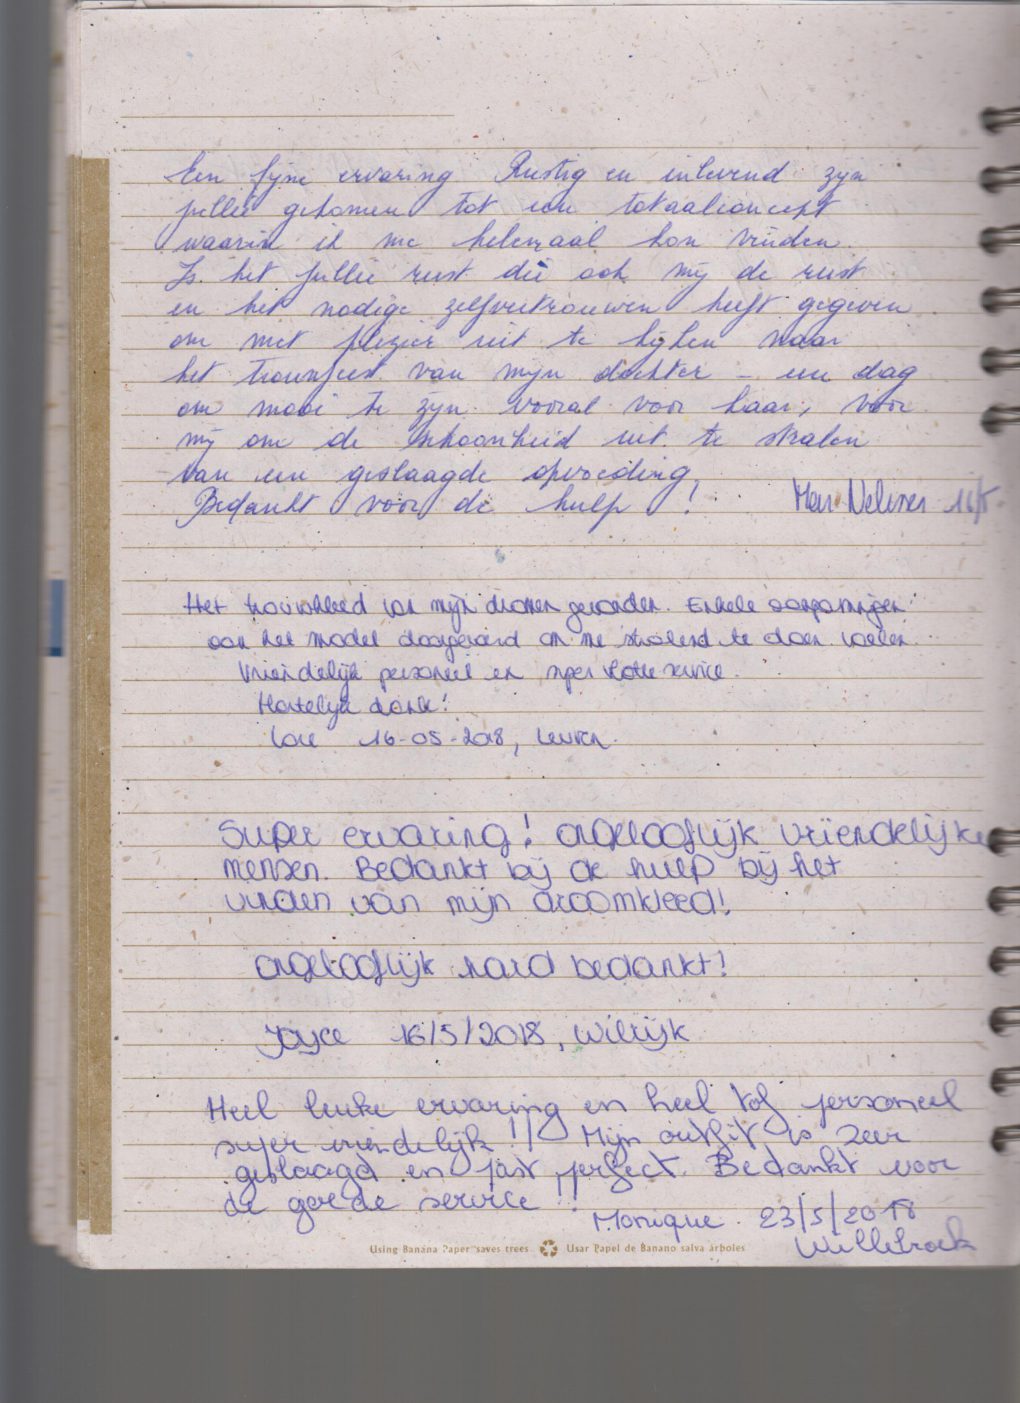 Een fijne ervaring Rustig en inlevend zijn
jullie gekomen tot een totaalconcept
waarin ik me helemaal kon vinden.
Is het jullie rust die ook mij de rust
en het nodige zelfvertrouwen heeft gegeven
om met plezier uit te kijken naar
het trouwfeest van mijn dochter - een dag
om mooi te zijn vooral voor haar, voor
mij om de schoonheid uit te stralen
van een geslaagde opvoeding
Bedankt voor de hulp !
16/5
Het trouwkleed van mijn dromen gevonden. Enkele aanpassingen
aan het model doorgevoerd om me stralend te doen voelen.
Vriendelijk personeel en super vlotte service.
Hartelijk dank!
Lore 16-05-2018, Leuven.
Super ervaring! ongelooflijk vriendelijke
mensen. Bedankt bij de hulp bij het
vinden van mijn droomkleed!
ongelooflijk hard bedankt!
Joyce 16/5/2018, Wilrijk
Heel leuke ervaring en heel tof personeel
super vriendelijk !! Mijn outfit is zeer
geslaagd en just perfect. Bedankt voor
de goede service !!
Monique. 23/5/2018
Willebroek
Using Banana Paper saves trees Usar Papel de Banano salva árboles